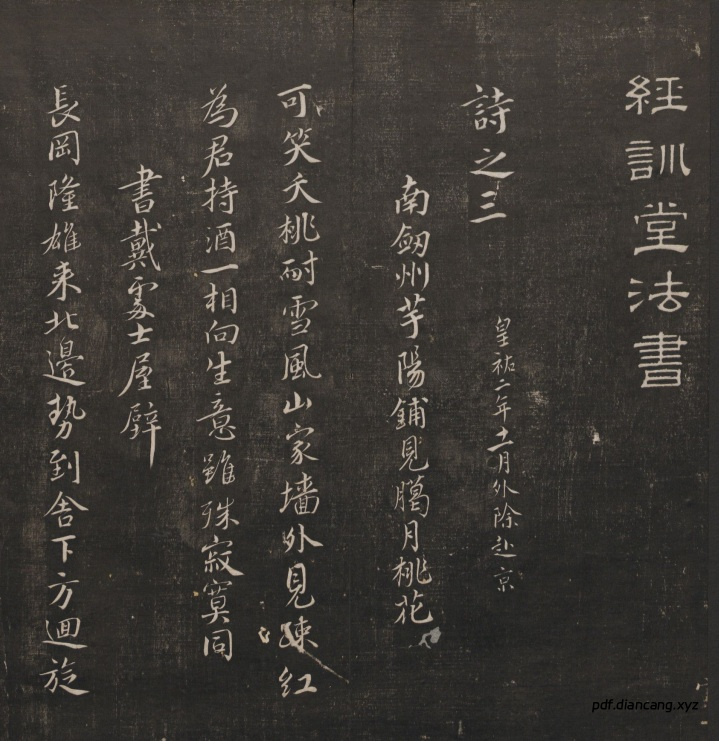 經訓堂法書
詩之三
皇祐二年十一月外除赴京
南劔州芋陽鋪見臈月桃花
可笑夭桃耐雪風山家墻外見疎紅
為君持酒一相向生意雖殊寂寞同
書戴處士屋壁
長岡隆雄来北邊勢到舍下方迴旋
pdf.diancang.xyz